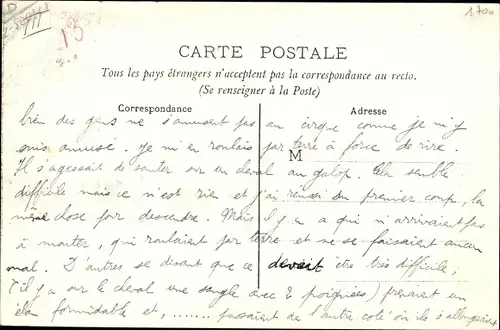 1700
13
CARTE POSTALE
Tous les pays étrangers n'acceptent pas la correspondance au recto.
(Se renseigner à la Poste)
Correspondance
Adresse
M
bien des gens ne s'amusent pas au cirque comme je m'y
suis amusé. Je m'en roulais par terre à force de rire.
Il s'agissait de sauter sur un cheval au galop. Cela semble
difficile mais ce n'est rien et j'ai réussi du premier coup, la
même chose pour descendre. Mais il y en a qui n'arrivaient pas
à monter, qui roulaient par terre et ne se faisaient aucun
mal. D'autres se disant que ce devait être très difficile,
(il y a sur le cheval une sangle avec 2 poignées) prenaient un
élan formidable et, ....... passaient de l'autre coté où ils s'allongeaient